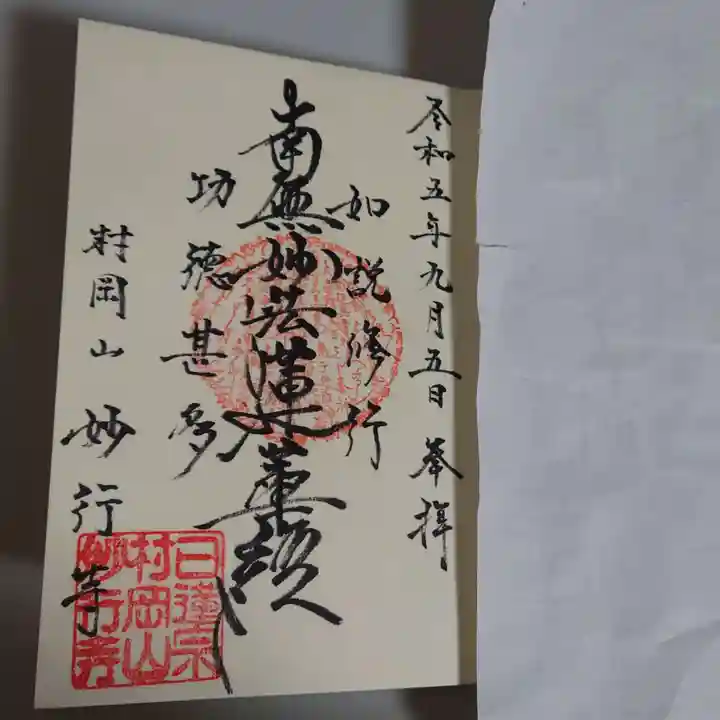 令和五年九月五日 奉拝
如説修行
南無妙法蓮華経
功徳甚多
村岡山 妙行寺
日蓮宗
村岡山
妙行寺